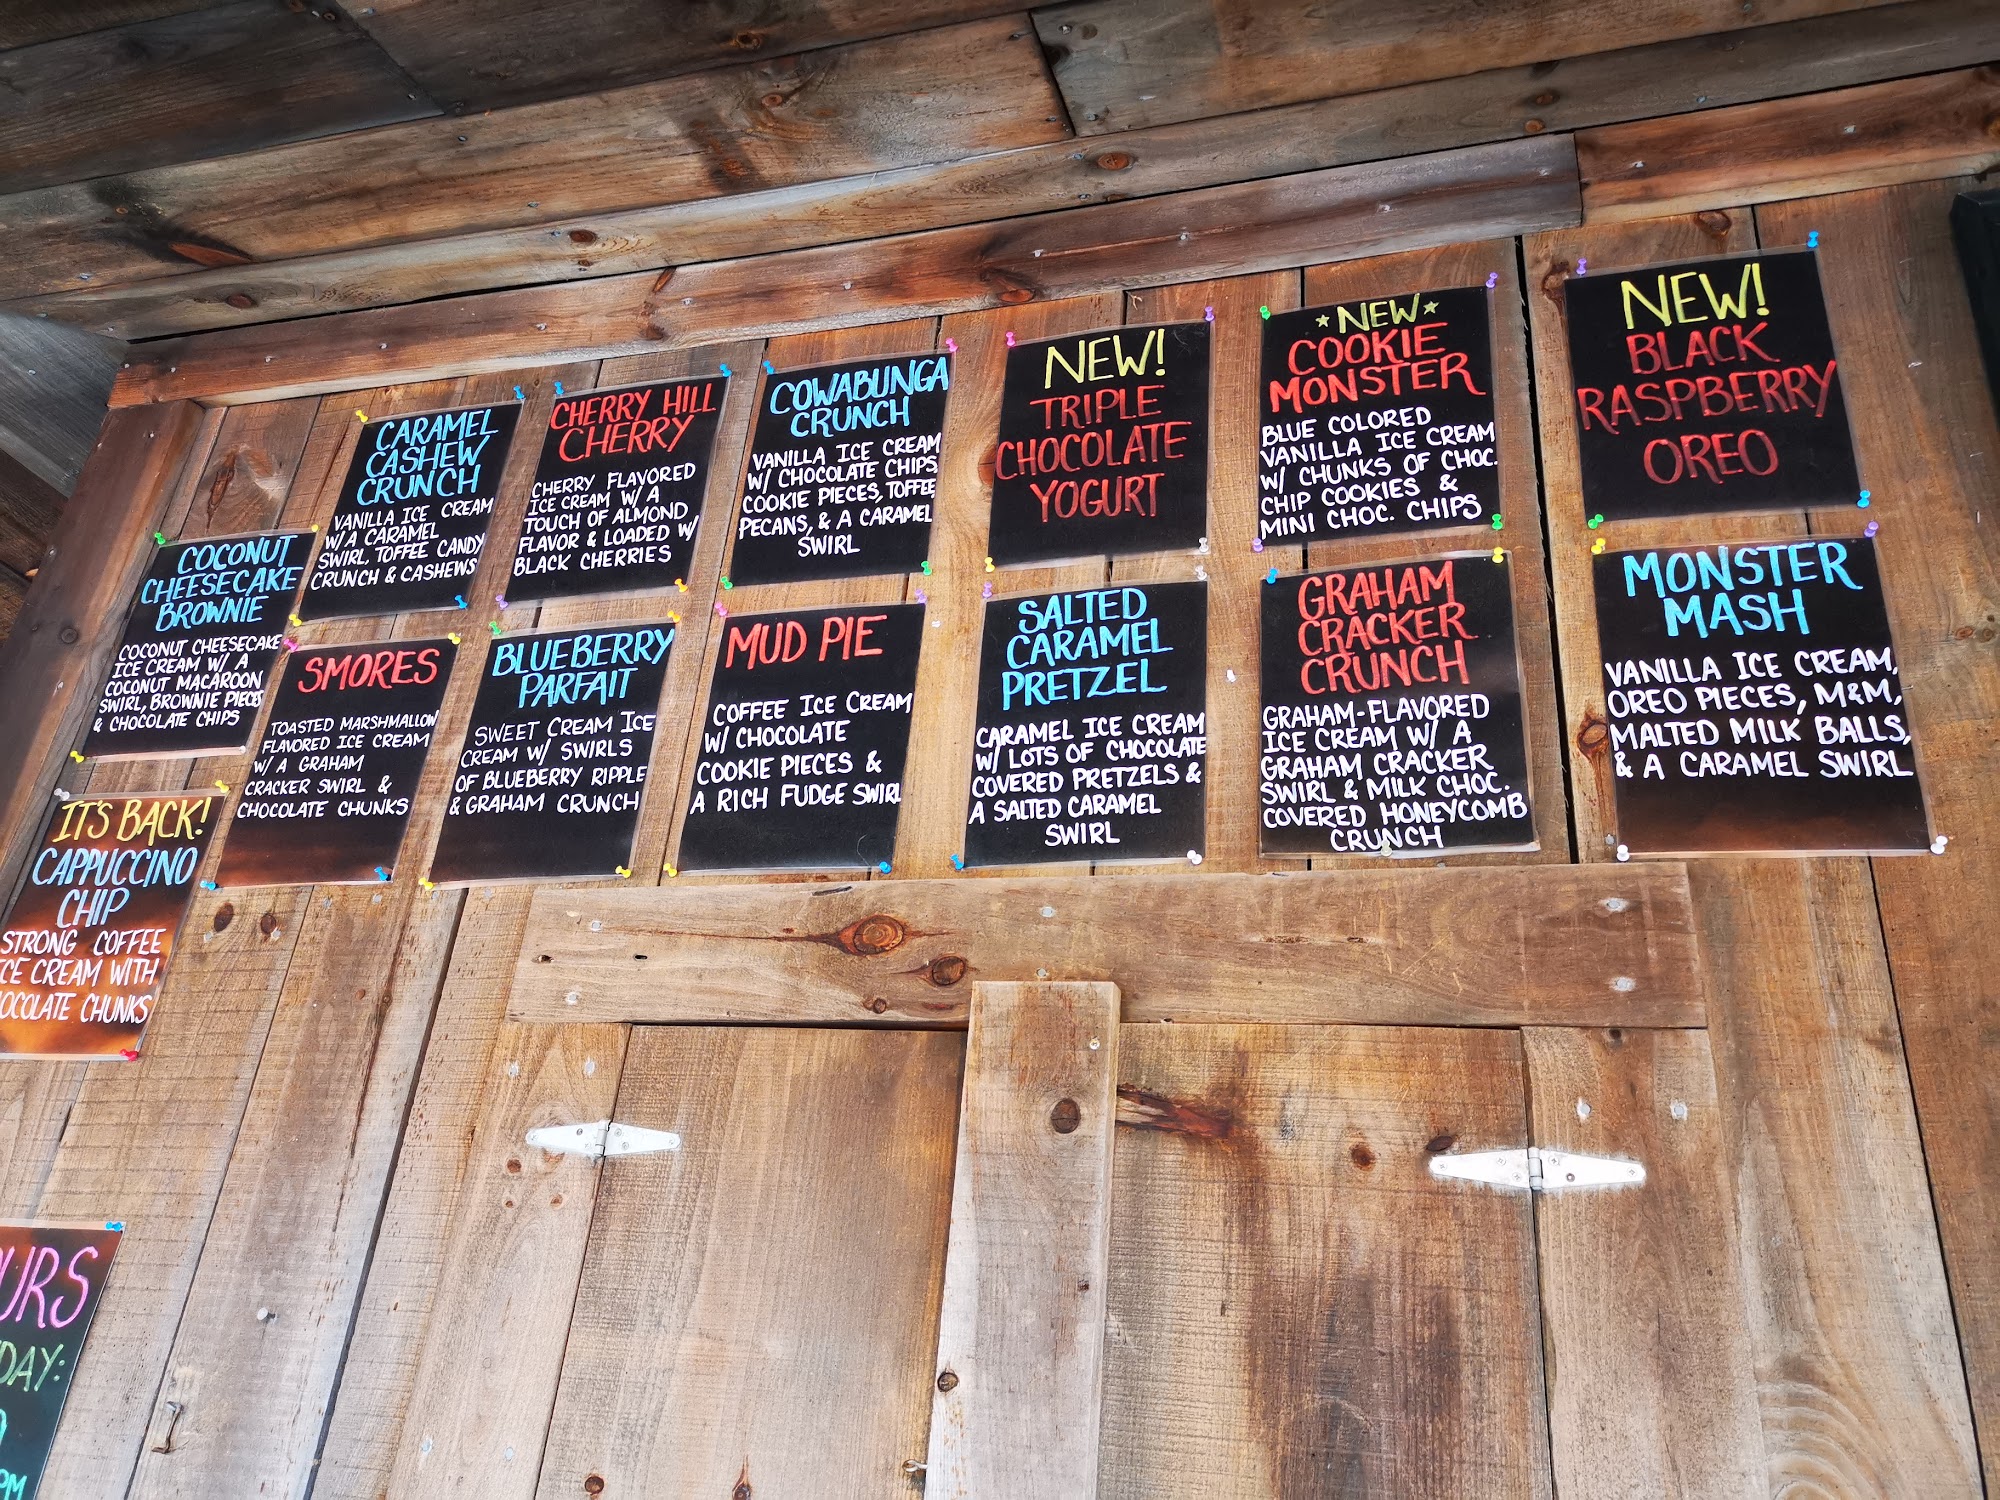 COCONUT
CHEESECAKE
BROWNIE
COCONUT CHEESECAKE
ICE CREAM W/ A
COCONUT MACAROON
SWIRL, BROWNIE PIECES
& CHOCOLATE CHIPS
CARAMEL
CASHEW
CRUNCH
VANILLA ICE CREAM
W/ A CARAMEL
SWIRL, TOFFEE CANDY
CRUNCH & CASHEWS
CHERRY HILL
CHERRY
CHERRY FLAVORED
ICE CREAM W/ A
TOUCH OF ALMOND
FLAVOR & LOADED W/
BLACK CHERRIES
COWABUNGA
CRUNCH
VANILLA ICE CREAM
W/ CHOCOLATE CHIPS,
COOKIE PIECES, TOFFEE,
PECANS, & A CARAMEL
SWIRL
NEW!
TRIPLE
CHOCOLATE
YOGURT
NEW
COOKIE
MONSTER
BLUE COLORED
VANILLA ICE CREAM
W/ CHUNKS OF CHOC.
CHIP COOKIES &
MINI CHOC. CHIPS
NEW!
BLACK
RASPBERRY
OREO
IT'S BACK!
CAPPUCCINO
CHIP
STRONG COFFEE
ICE CREAM WITH
OCOLATE CHUNKS
SMORES
TOASTED MARSHMALLOW
FLAVORED ICE CREAM
W/ A GRAHAM
CRACKER SWIRL &
CHOCOLATE CHUNKS
BLUEBERRY
PARFAIT
SWEET CREAM ICE
CREAM W/ SWIRLS
OF BLUEBERRY RIPPLE
& GRAHAM CRUNCH
MUD PIE
COFFEE ICE CREAM
W/ CHOCOLATE
COOKIE PIECES &
A RICH FUDGE SWIRL
SALTED
CARAMEL
PRETZEL
CARAMEL ICE CREAM
W/ LOTS OF CHOCOLATE
COVERED PRETZELS &
A SALTED CARAMEL
SWIRL
GRAHAM
CRACKER
CRUNCH
GRAHAM-FLAVORED
ICE CREAM W/ A
GRAHAM CRACKER
SWIRL & MILK CHOC.
COVERED HONEYCOMB
CRUNCH
MONSTER
MASH
VANILLA ICE CREAM,
OREO PIECES, M&M,
MALTED MILK BALLS,
& A CARAMEL SWIRL
URS
DAY:
PM